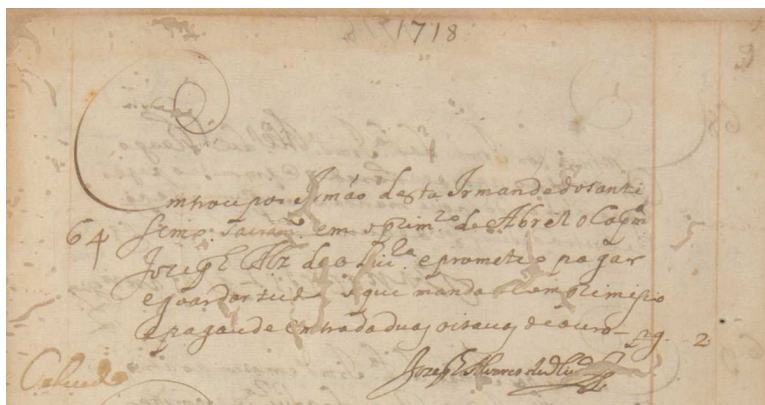 1718
Entrou por Irmão desta Irmandᵉ do santi
simo sacramᵗᵒ em o primʳᵒ de Abril o Capᵐ
64
Joseph Alz de olivʳᵃ e prometeo pagar
e goardar tudo o que manda o Compremisio
e pagou de entrada duas oitavas de ouro — 2
Joseph Alvares de